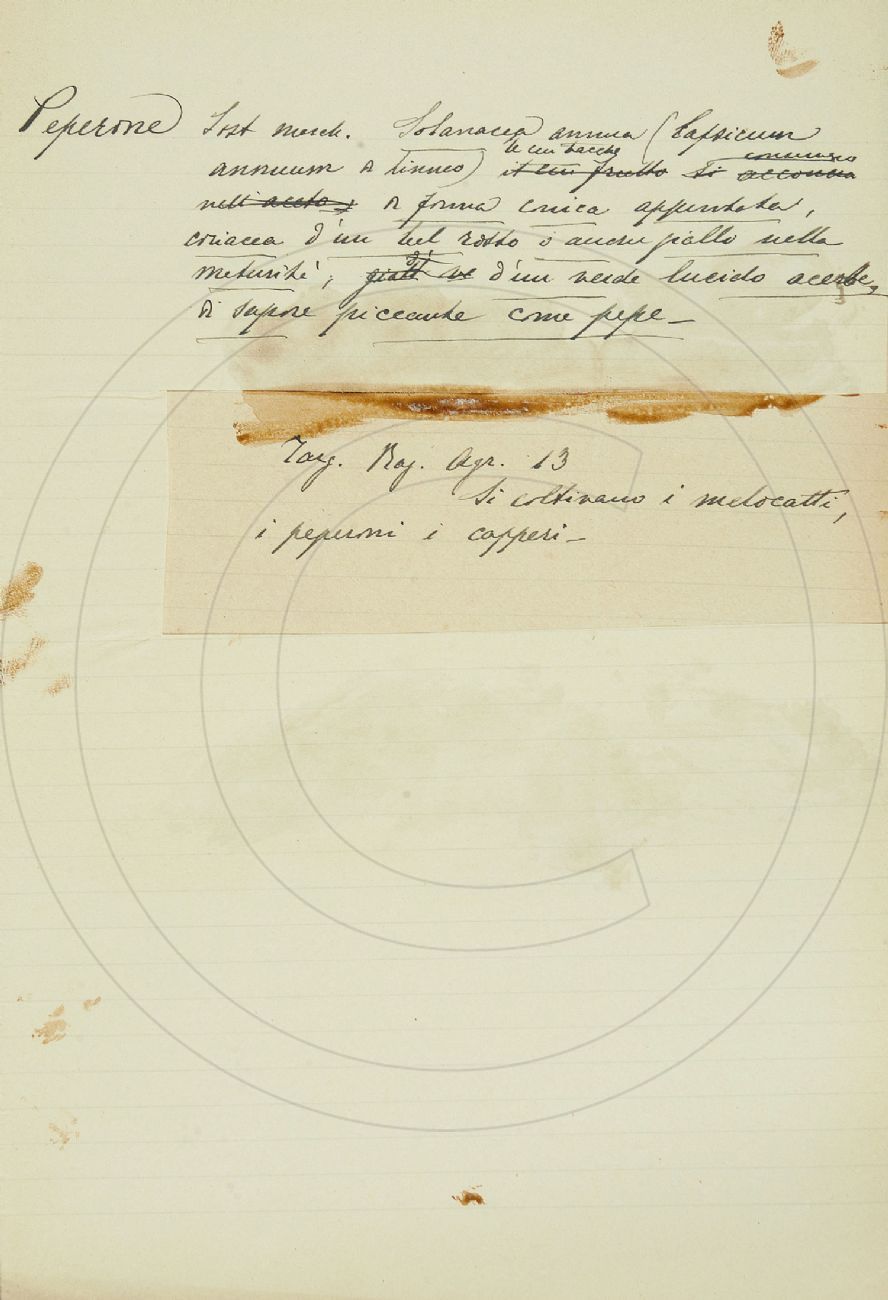 Peperone Sost masch. Solanacea annua (Capsicum
le cui bacche
annuum di Linneo) il cui frutto si acconcia
consumano
nell'aceto; di forma conica appuntata,
coriacea d'un bel rosso o anche giallo nella
maturità, d'un verde lucido acerbe,
di sapore piccante come pepe_
Targ. Rag. Agr. 13
Si coltivano i melocatti,
i peperoni i capperi_